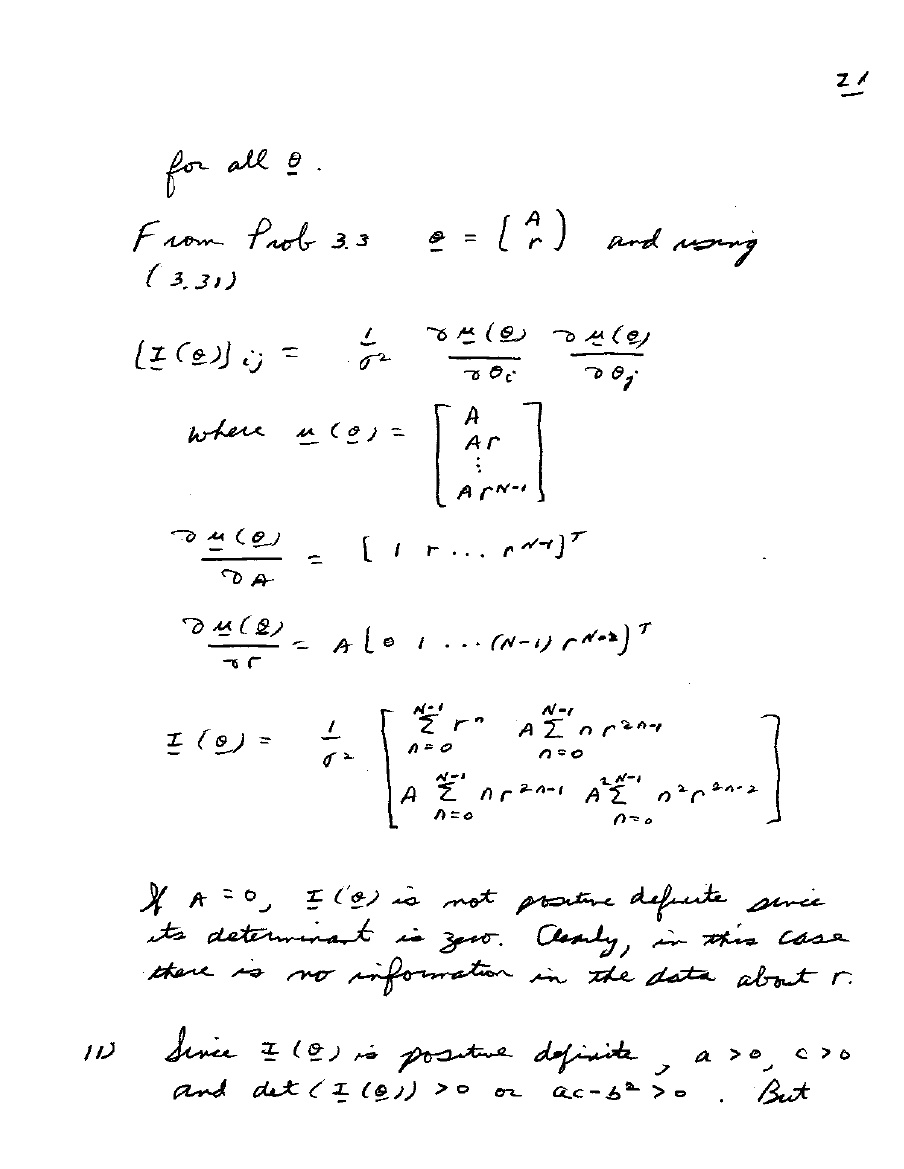 21
for all θ.
From Prob 3.3 θ = (A r) and using
(3.31)
[I(θ)]ij = 1/σ² ∂μ(θ)/∂θi ∂μ(θ)/∂θj
where μ(θ) = [A Ar ⋮ Ar^N-1]
∂μ(θ)/∂A = [1 r ... r^N-1]^T
∂μ(θ)/∂r = A[0 1 ... (N-1) r^N-2]^T
I(θ) = 1/σ² [Σ_{n=0}^{N-1} r^n A Σ_{n=0}^{N-1} n r^{2n-1}
A Σ_{n=0}^{N-1} n r^{2n-1} A² Σ_{n=0}^{N-1} n² r^{2n-2}]
If A = 0, I(θ) is not positive definite since
its determinant is zero. Clearly, in this case
there is no information in the data about r.
11) Since I(θ) is positive definite, a > 0, c > 0
and det(I(θ)) > 0 or ac-b² > 0. But